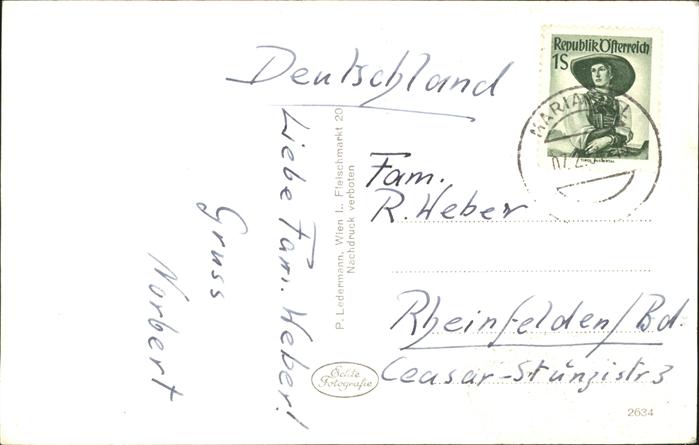 Deutschland
Liebe Fam. Weber!
Gruss
Norbert
P. Ledermann, Wien I., Fleischmarkt 20
Nachdruck verboten
Republik Österreich
1S
Fam.
R. Weber
Rheinfelden/Bd.
Ceasar-Stünzistr 3
Echte
Fotografie
2634